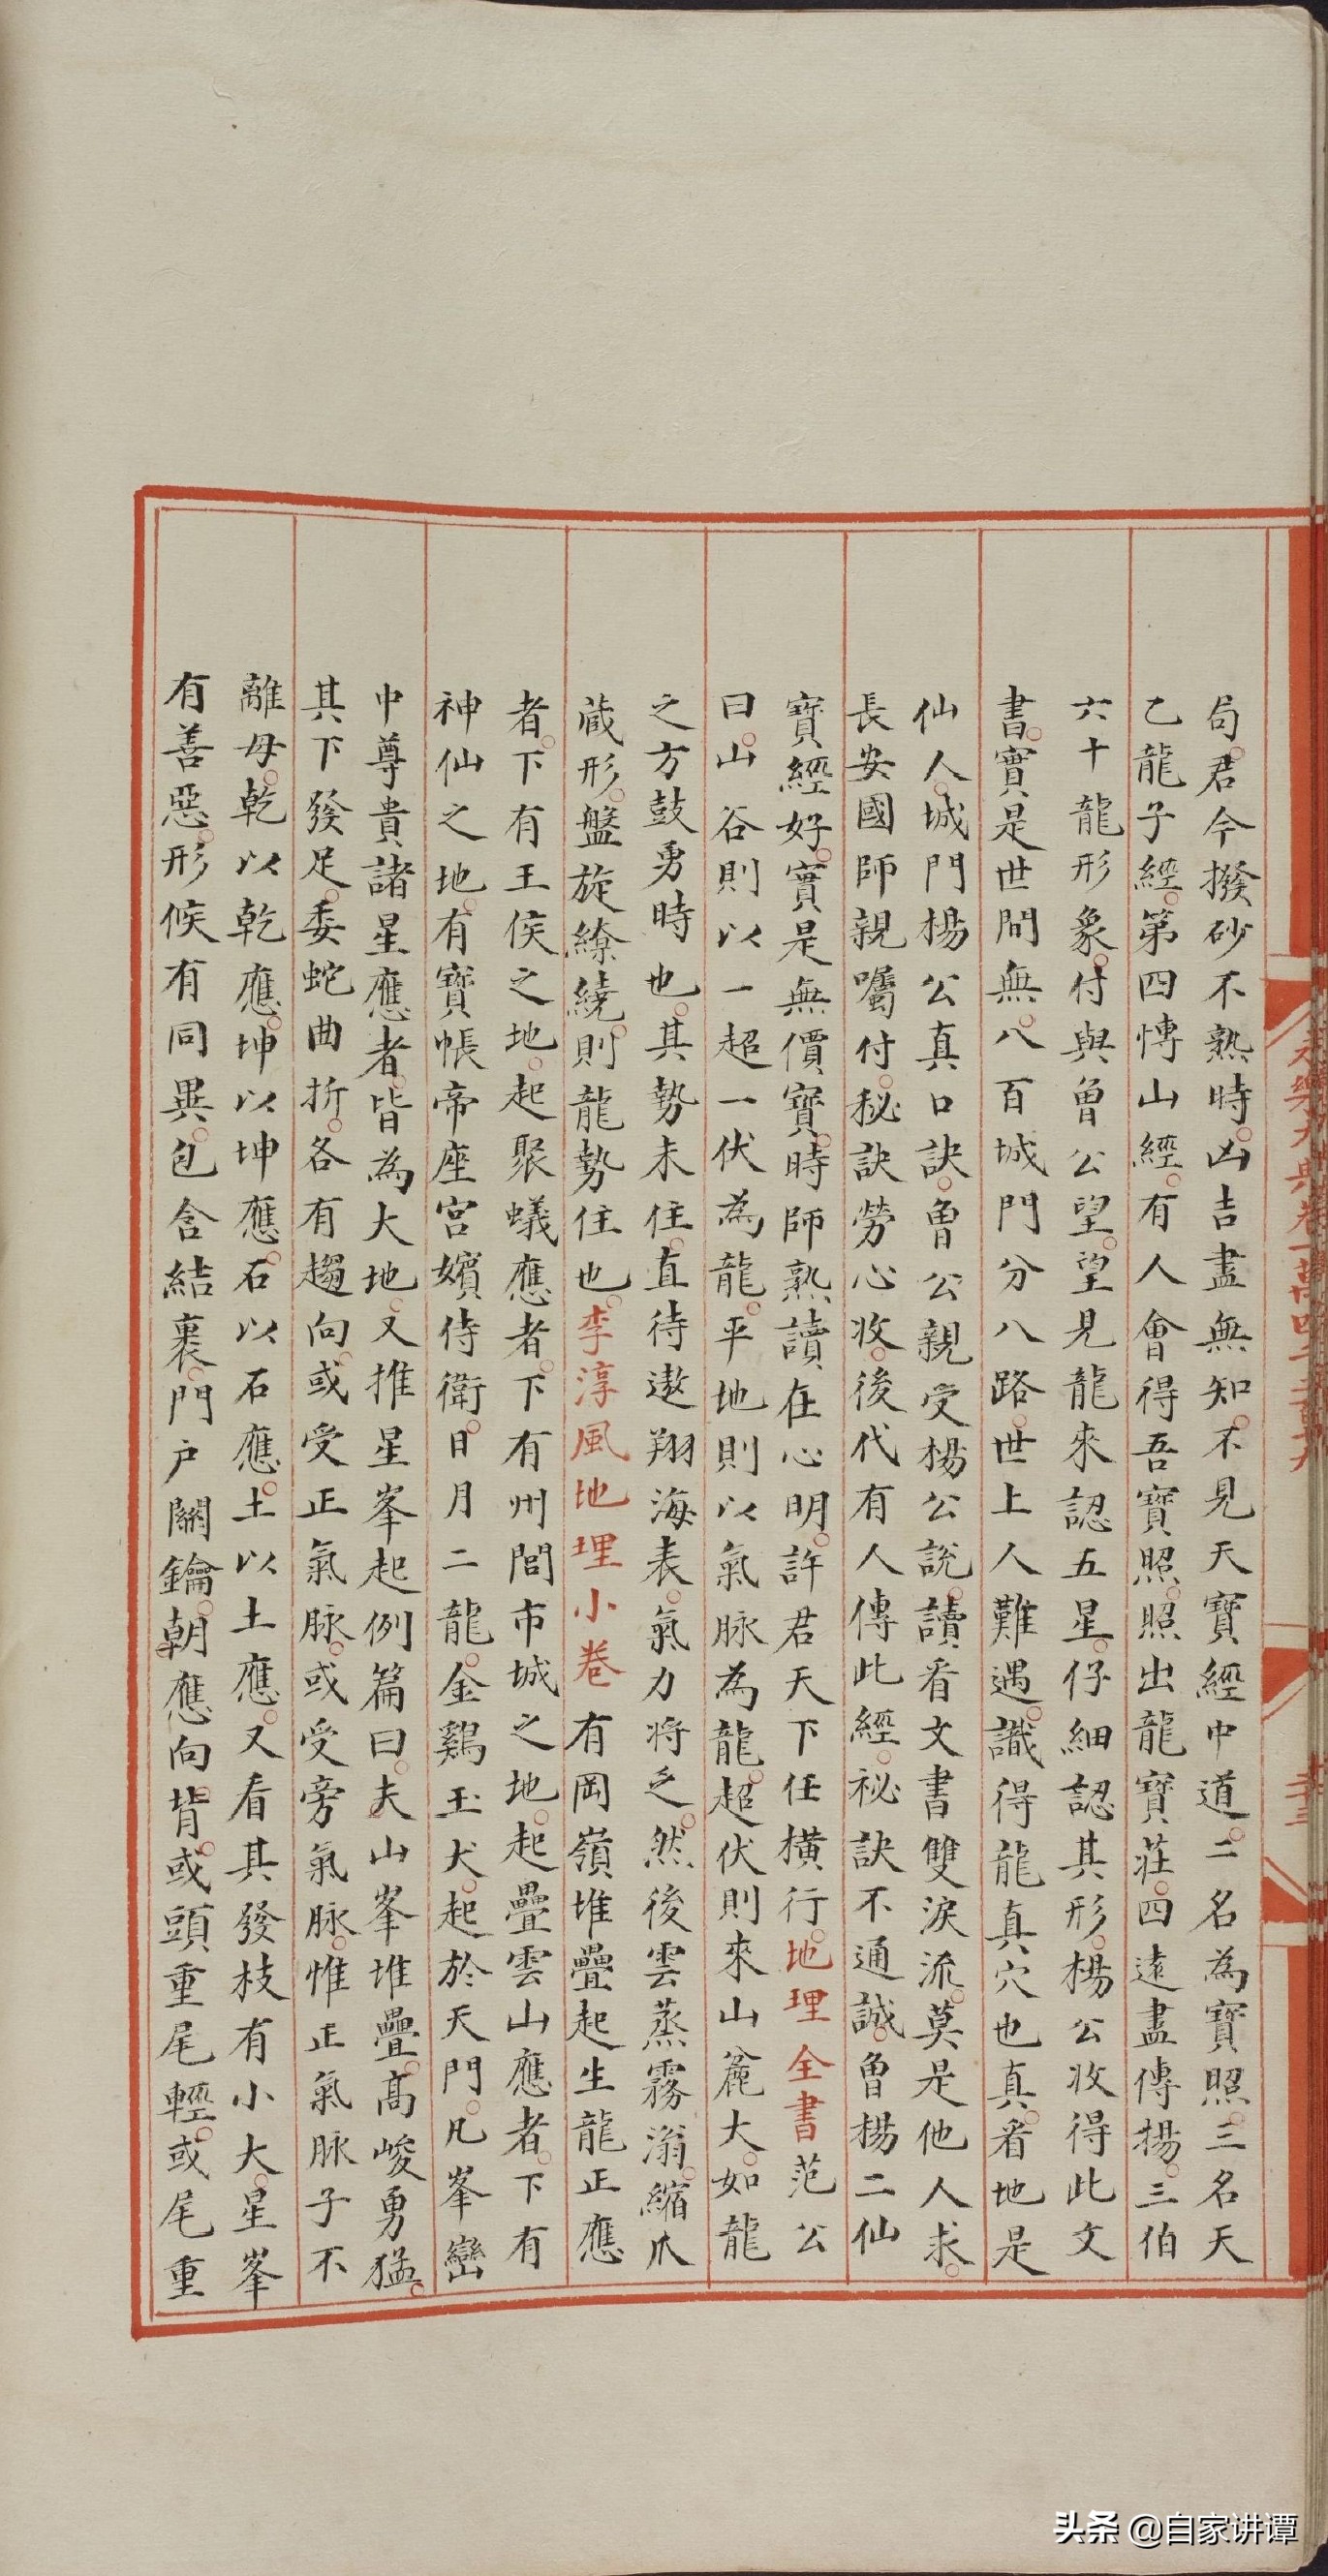 局君今撥砂不熟時凶吉盡無知不見天寶經中道二名為寶照三名天
乙龍子經第四慱山經有人會得吾寶照照出龍寶莊四遠盡傳揚三伯
六十龍形象付與曾公望望見龍來認五星仔細認其形楊公收得此文
書實是世間無八百城門分八路世上人難遇識得龍真穴也真看地是
仙人城門楊公真口訣曾公親受楊公說讀看文書雙淚流莫是他人求
長安國師親囑付秘訣勞心收後代有人傳此經祕訣不通誠曾楊二仙
寶經好實是無價寶時師熟讀在心明許君天下任橫行地理全書范公
曰山谷則以一超一伏為龍平地則以氣脉為龍超伏則來山麄大如龍
之方鼓勇時也其勢未住直待遨翔海表氣力將乏然後雲蒸霧滃縮爪
蔵形盤旋繚繞則龍勢住也李淳風地埋小卷有岡嶺堆疊起生龍正應
者下有王侯之地起聚蟻應者下有州閭市城之地起疊雲山應者下有
神仙之地有寶帳帝座宮嬪侍衛日月二龍金鷄玉犬起於天門凡峯巒
中尊貴諸星應者皆為大地又推星峯起例篇曰夫山峯堆疊高峻勇猛
其下發足委蛇曲折各有趨向或受正氣脉或受旁氣脉惟正氣脉子不
離母乾以乾應坤以坤應石以石應土以土應又看其發枝有小大星峯
有善惡形候有同異包含結裹門户關鑰朝應向背或頭重尾輕或尾重
头条 @自家讲谭